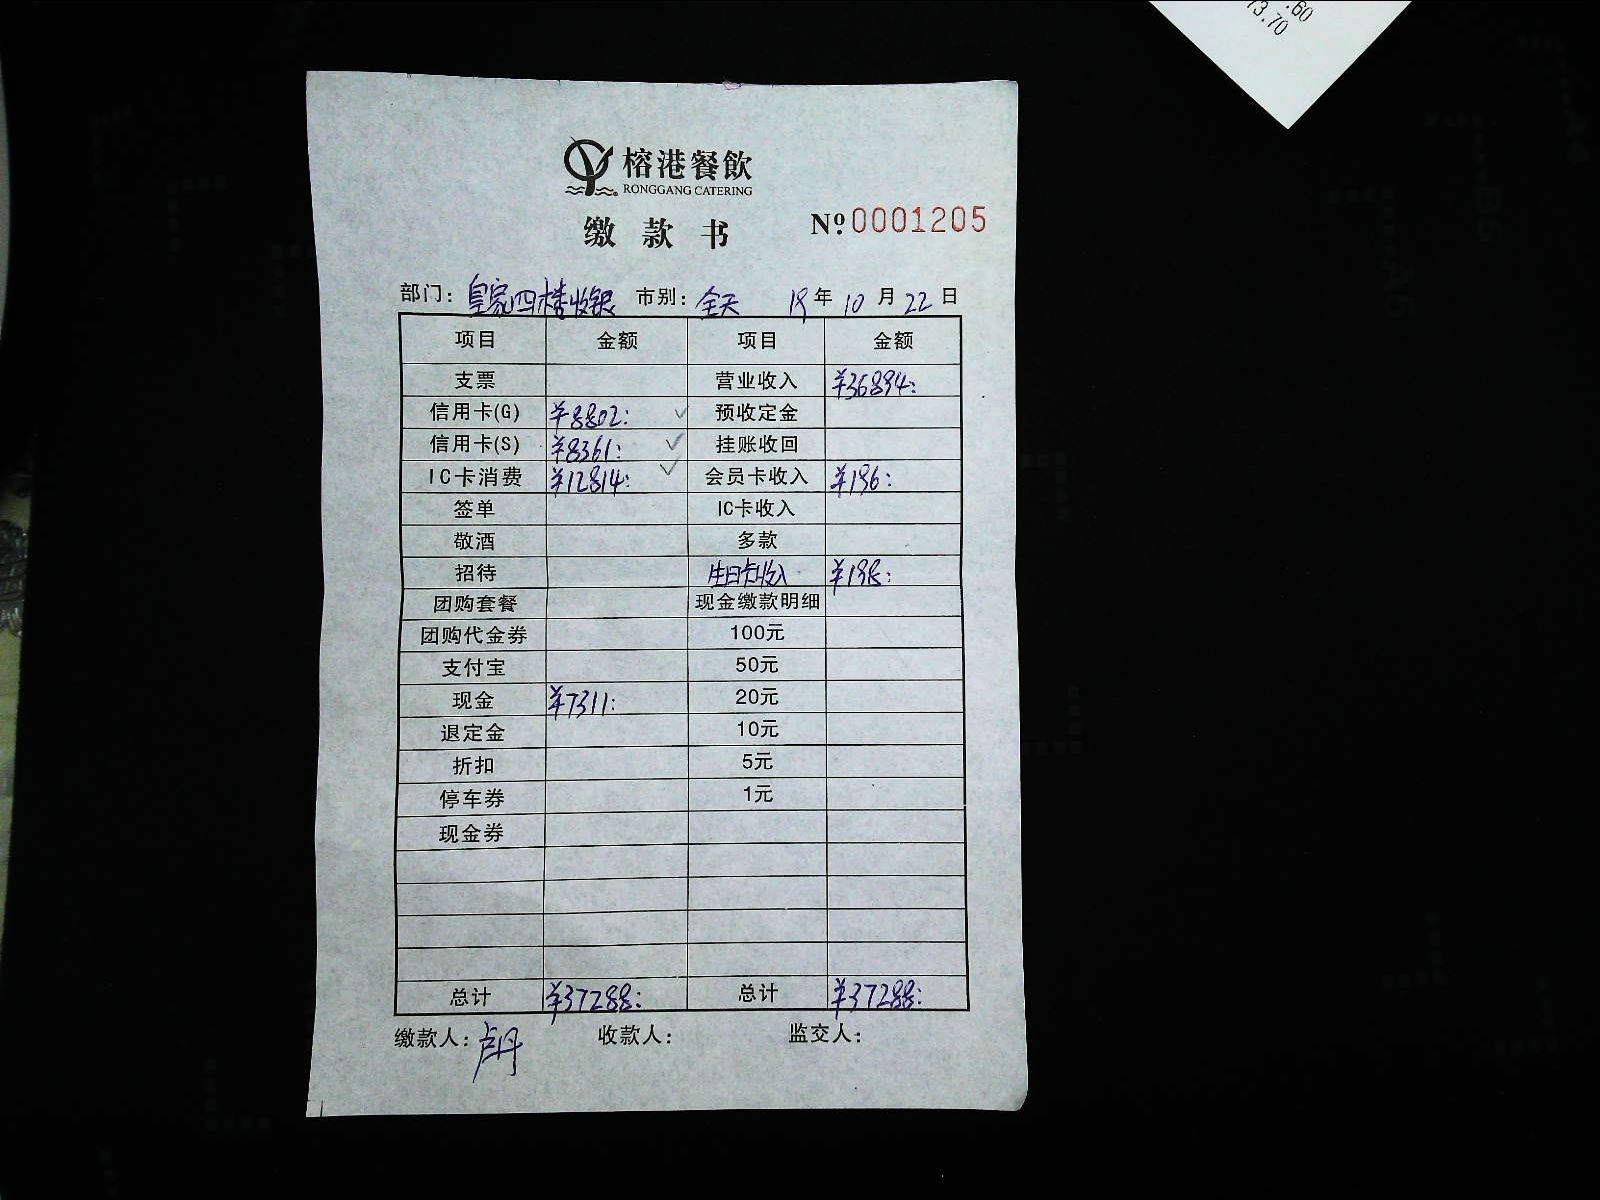 .60
3.70
榕港餐飲
RONGGANG CATERING
缴款书 Nº:0001205
部门: 皇家四楼收银 市别: 全天 19年10月22日
项目 金额 项目 金额
支票 营业收入 ¥36894:
信用卡(G) ¥8802: 预收定金
信用卡(S) ¥8361: 挂账收回
IC卡消费 ¥12814: 会员卡收入 ¥196:
签单 IC卡收入
敬酒 多款
招待 生日卡收入 ¥198:
团购套餐 现金缴款明细
团购代金券 100元
支付宝 50元
现金 ¥7311: 20元
退定金 10元
折扣 5元
停车券 1元
现金券
总计 ¥37288: 总计 ¥37288:
缴款人: 卢丹 收款人: 监交人: